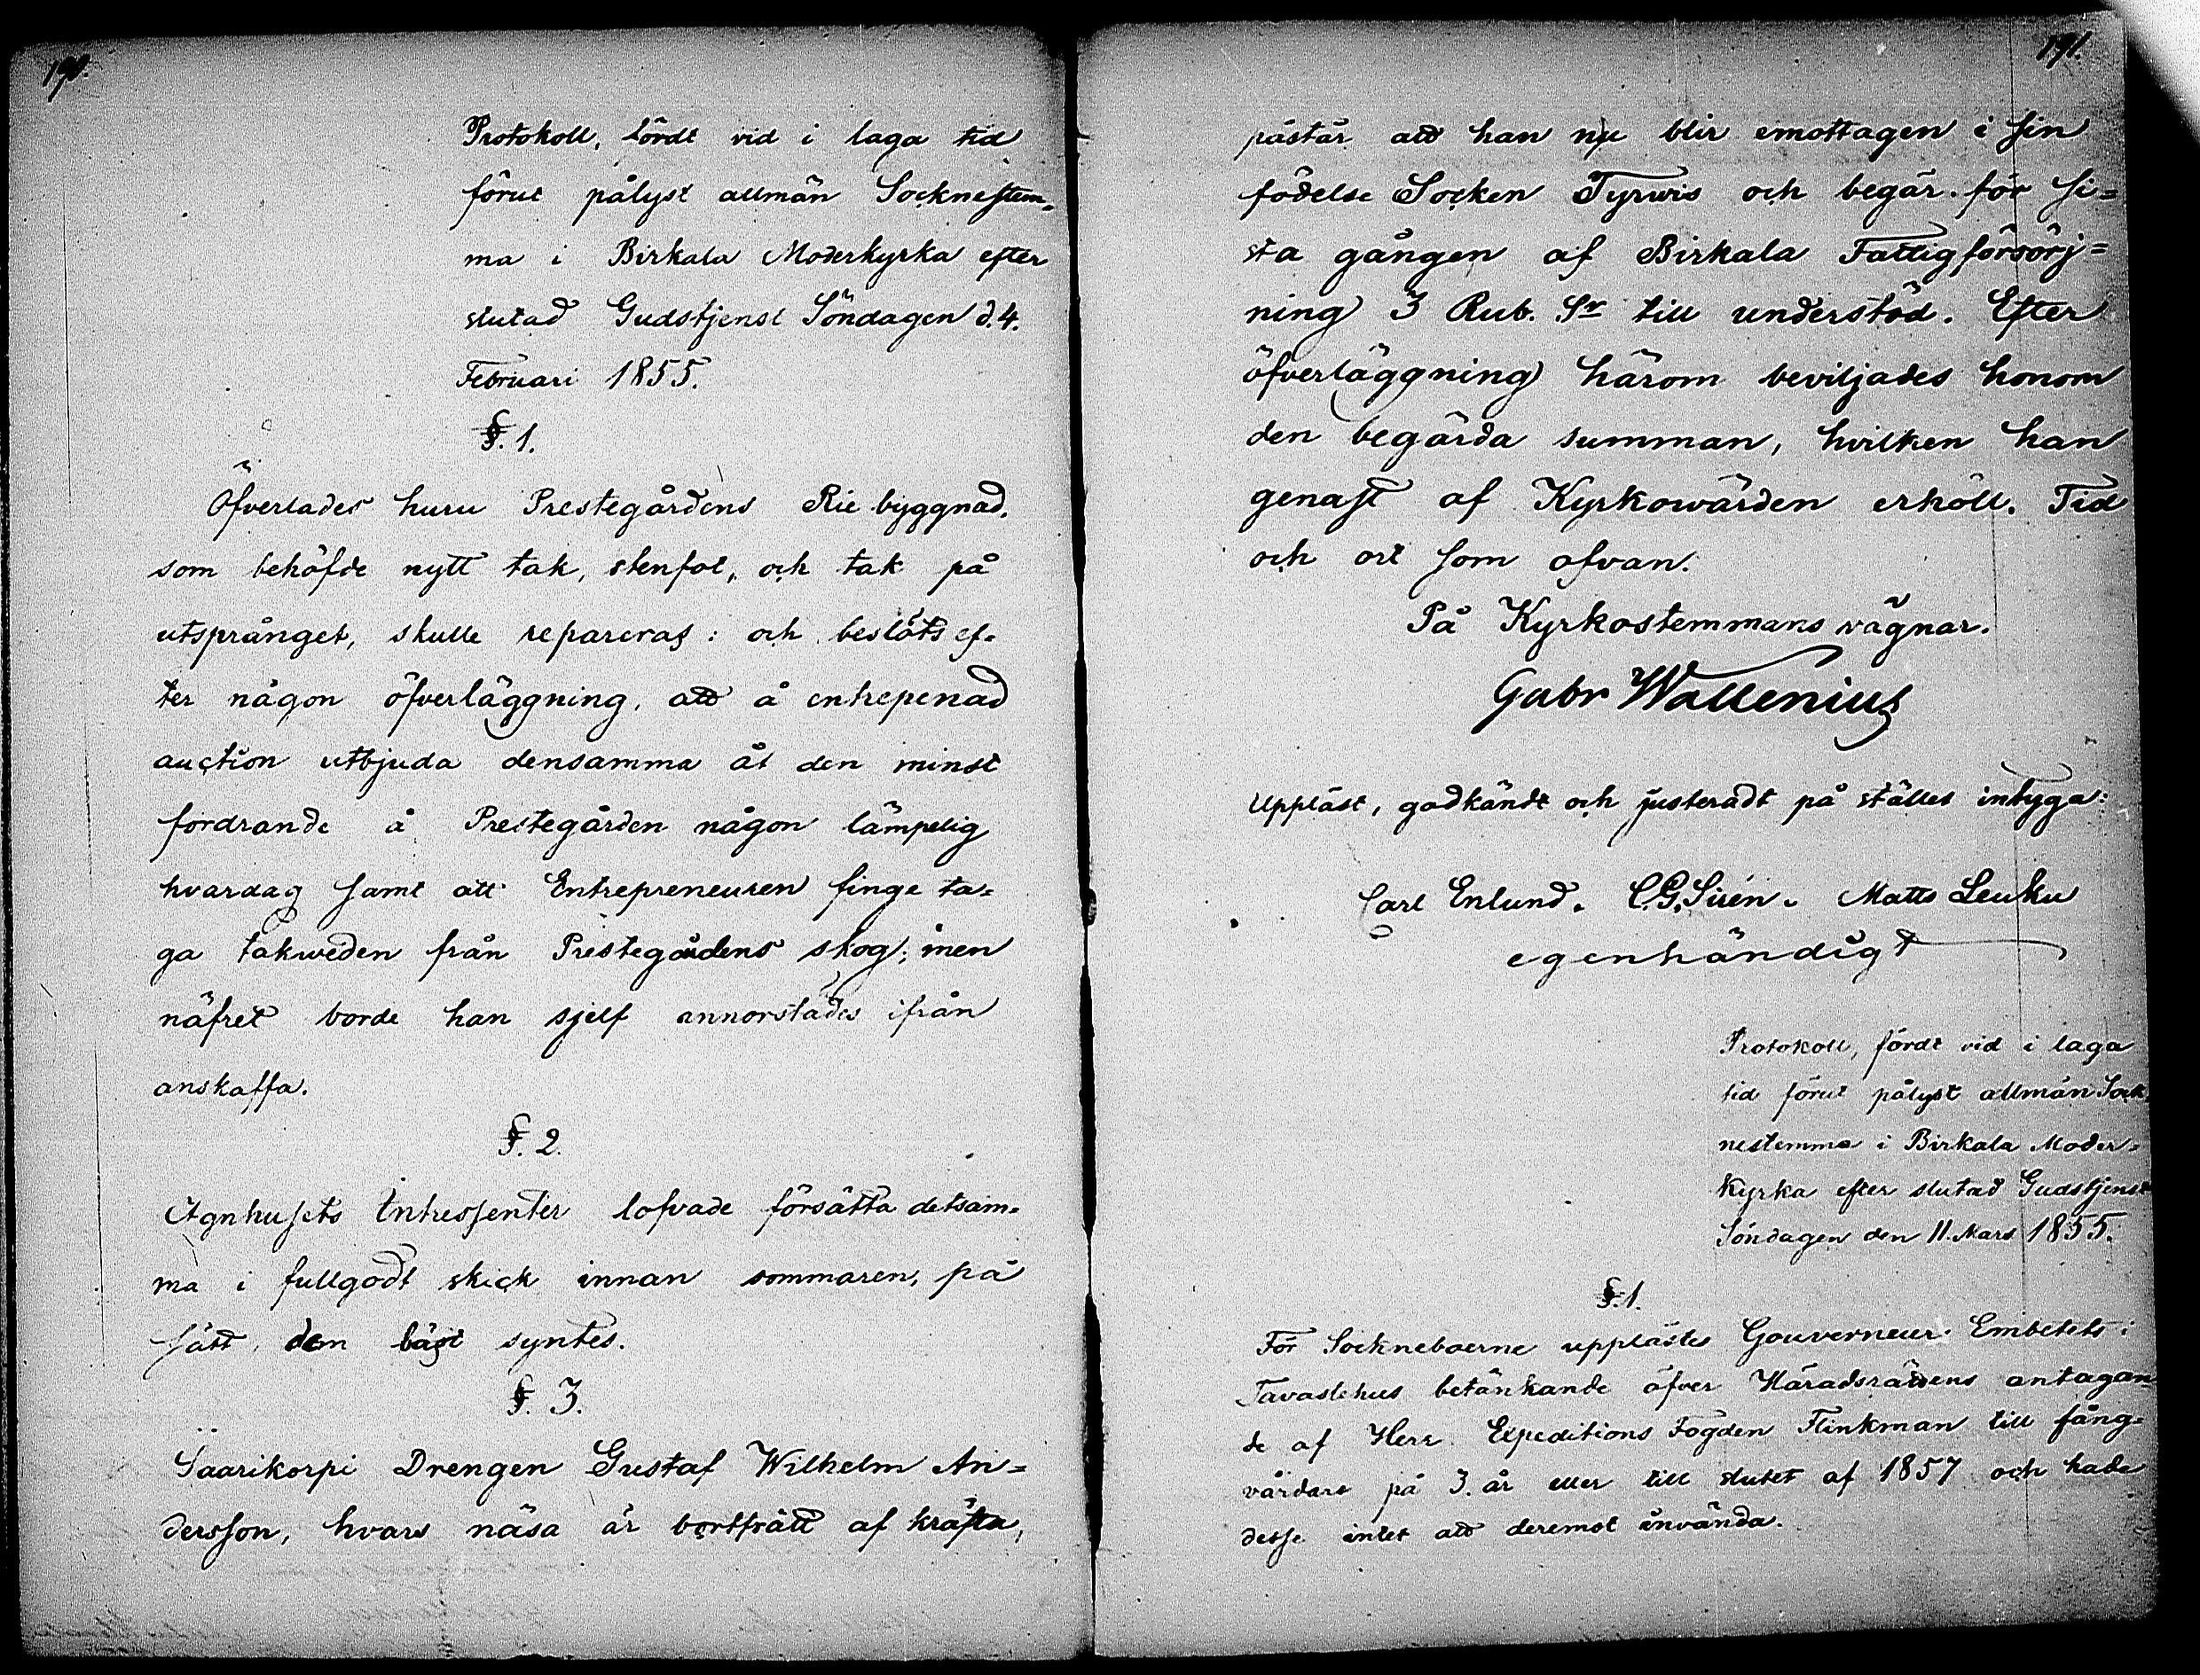 190.
Protokoll, fördt vid i laga tid
förut pålyst allmän Socknestem-
ma i Birkala Moderkyrka efter
slutad Gudstjenst Söndagen d. 4.
Februari 1855.
§. 1.
Öfverlades huru Prestegårdens Rie byggnad,
som behöfde nytt tak, stenfot, och tak på
utsprånget, skulle reparera&s: och beslöts ef-
ter någon öfverläggning, att å entrepenad
auction utbjuda densamma åt den minst
fordrande å Prestegården någon lämpelig
hvardag samt att Entrepreneuren finge ta-
ga takweden från Prestegårdens skog; men
näfret borde han sjelf annorstädes ifrån
anskaffa.
§. 2.
Agnhusets Intressenter lofvade försätta detsam-
ma i fullgodt skick innan sommaren, på
sätt, dem bäst syntes.
§. 3.
Saarikorpi Drengen Gustaf Wilhelm An-
dersson, hvars näsa är bortfrätt af kräfta,
191.
påstår att han nu blir emottagen i sin
födelse Socken Tyrwis och begär för si-
sta gången af Birkala Fattigförsörj-
ning 3 Rub. Sr till understöd. Efter
öfverläggning härom beviljades honom
den begärda summan, hvilken han
genast af Kyrkowärden erhöll. Tid
och ort som ofvan.
På Kyrkostemmans vägnar.
Gabr Wallenius
Uppläst, godkändt och justeradt på stället intyga:
Carl Enlund. C.G. Sirén. Matts Leuku
egenhändigt
Protokoll, fördt vid i laga
tid förut pålyst allmän Sock
nestemma i Birkala Moder-
kyrka efter slutad Gudstjenst
Söndagen den 11. Mars 1855.
§. 1.
För Socknebоerne upplästes Gouverneur Embetets i
Tavastehus betänkande öfver Häradsrättens antagan-
de af Herr Expeditions Fogden Flinkman till fång-
vårdare på 3. år eller till slutet af 1857 och hade
desse intet att deremot invända.